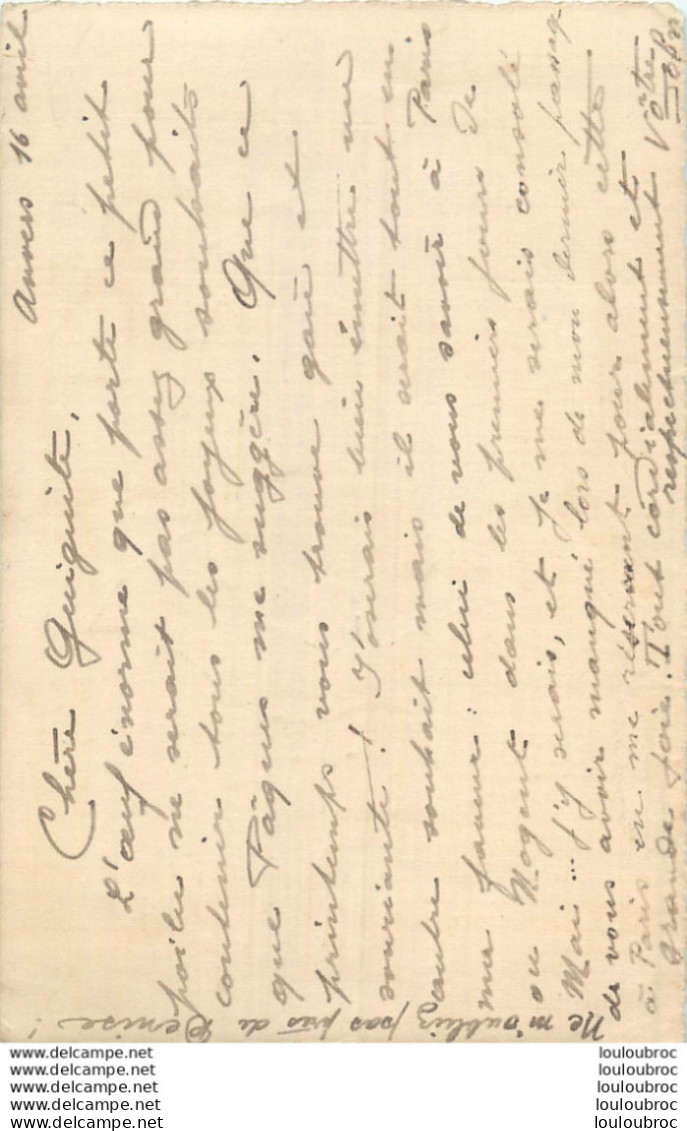 Anvers 16 avril
Chère Guiguite,
L'œuf énorme que porte ce petit
poilu ne serait pas assez grand pour
contenir tous les joyeux souhaits
que Pâques me suggère. Que ce
printemps vous trouve gaie et
souriante! J'oserais bien émettre un
autre souhait mais il serait tout en
ma faveur: celui de vous savoir à Paris
ou Nogent dans les premiers jours de
Mai... j'y serais, et je me serais consolé
de vous avoir manqué lors de mon dernier passag
à Paris en me réservant pour alors cette
grande joie. Tout cordialement et
respectueusement Vôtre
Ne m'oubliez pas près de Denise!
www.delcampe.net
www.delcampe.net
www.delcampe.net
www.delcampe.net
www.delcampe.net
louloubroc
louloubroc
louloubroc
louloubroc
louloubroc